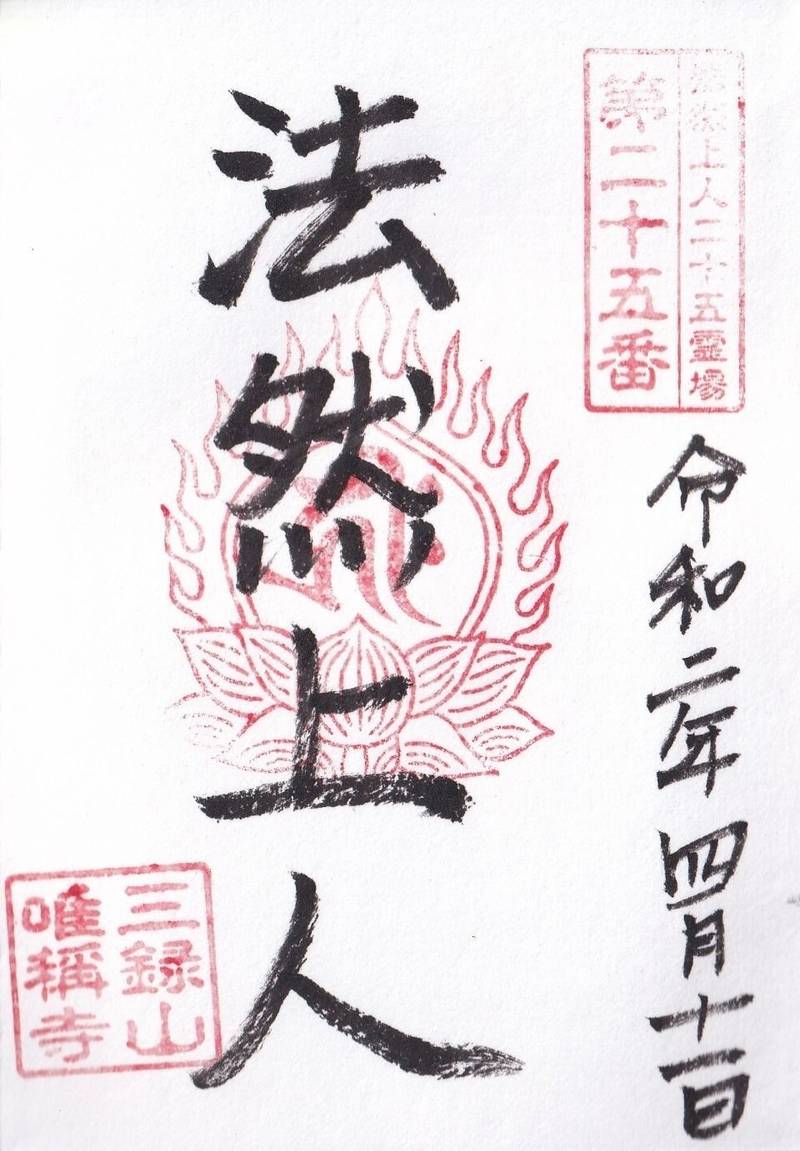 上人二十五霊場
第二十五番
令和二年四月十一日
法然上人
三録山
唯稱寺